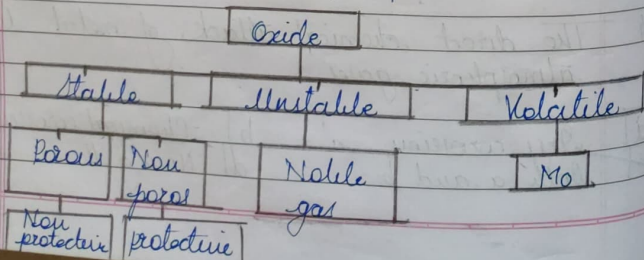 Oxide
Stable
Unstable
Volatile
Porous
Non
poros
Noble
gas
Mo
Non
protective
protective